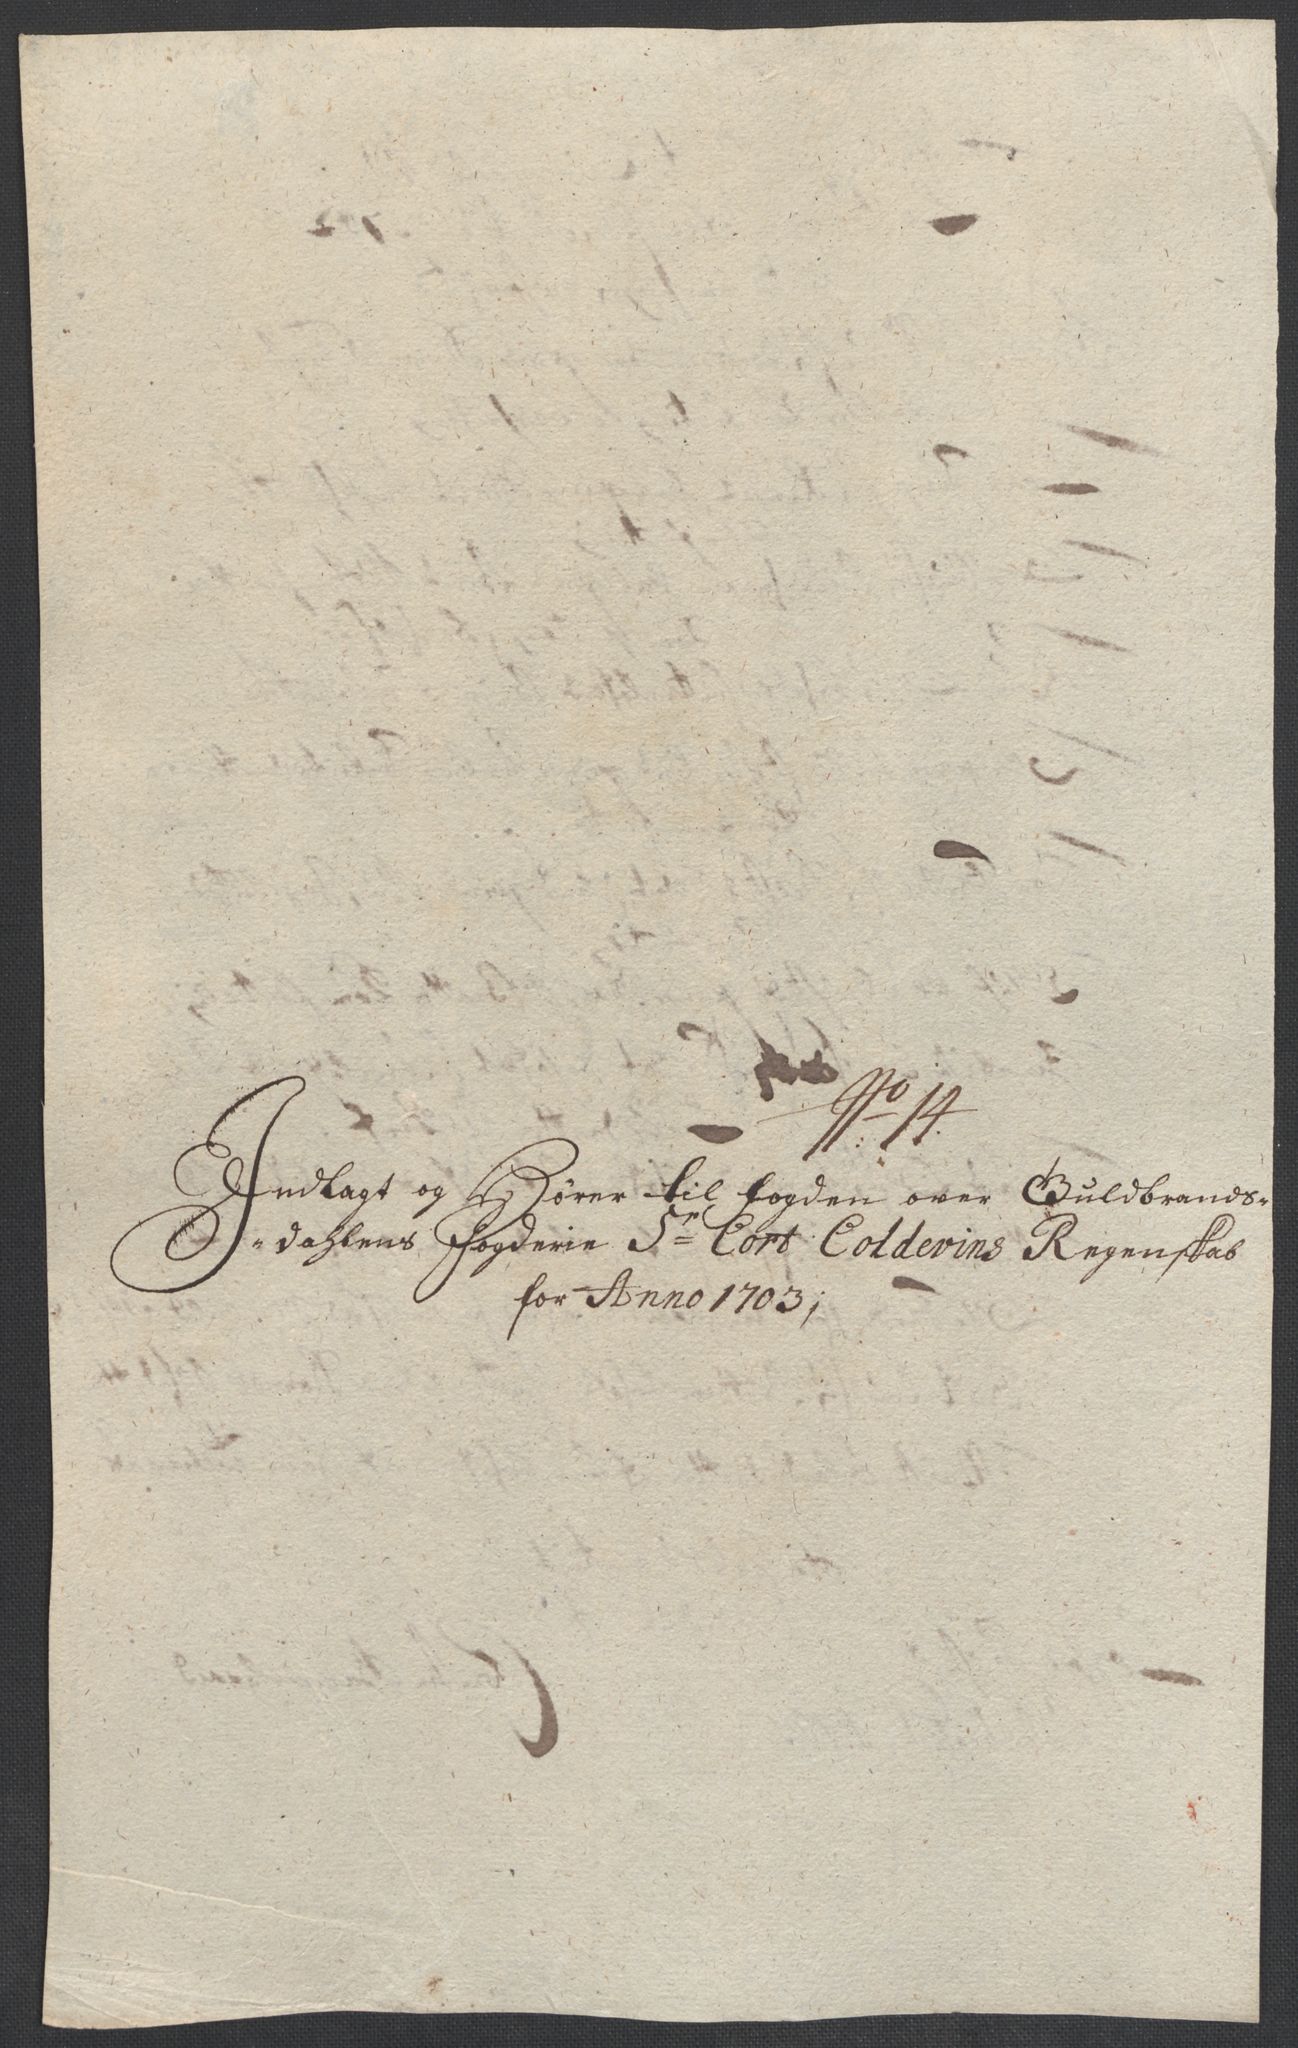 No 14.
Indlagt og Hörer til fogden over Guldbrands-
-dahlens fogderie Sr Cort Coldevins Regenskab
for Anno 1703;